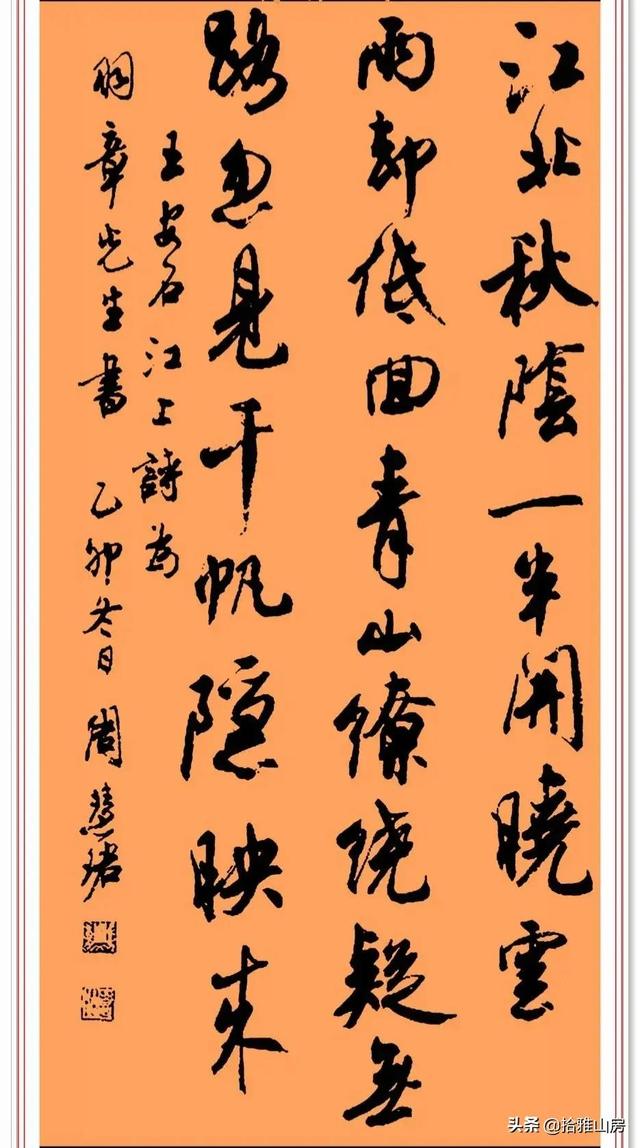 江北秋陰一半開曉雲
雨却低回青山繚繞疑無
路忽見千帆隱映來
王安石江上詩為
章先生書 乙卯冬日 周慧珺
头条 @拾雅山房